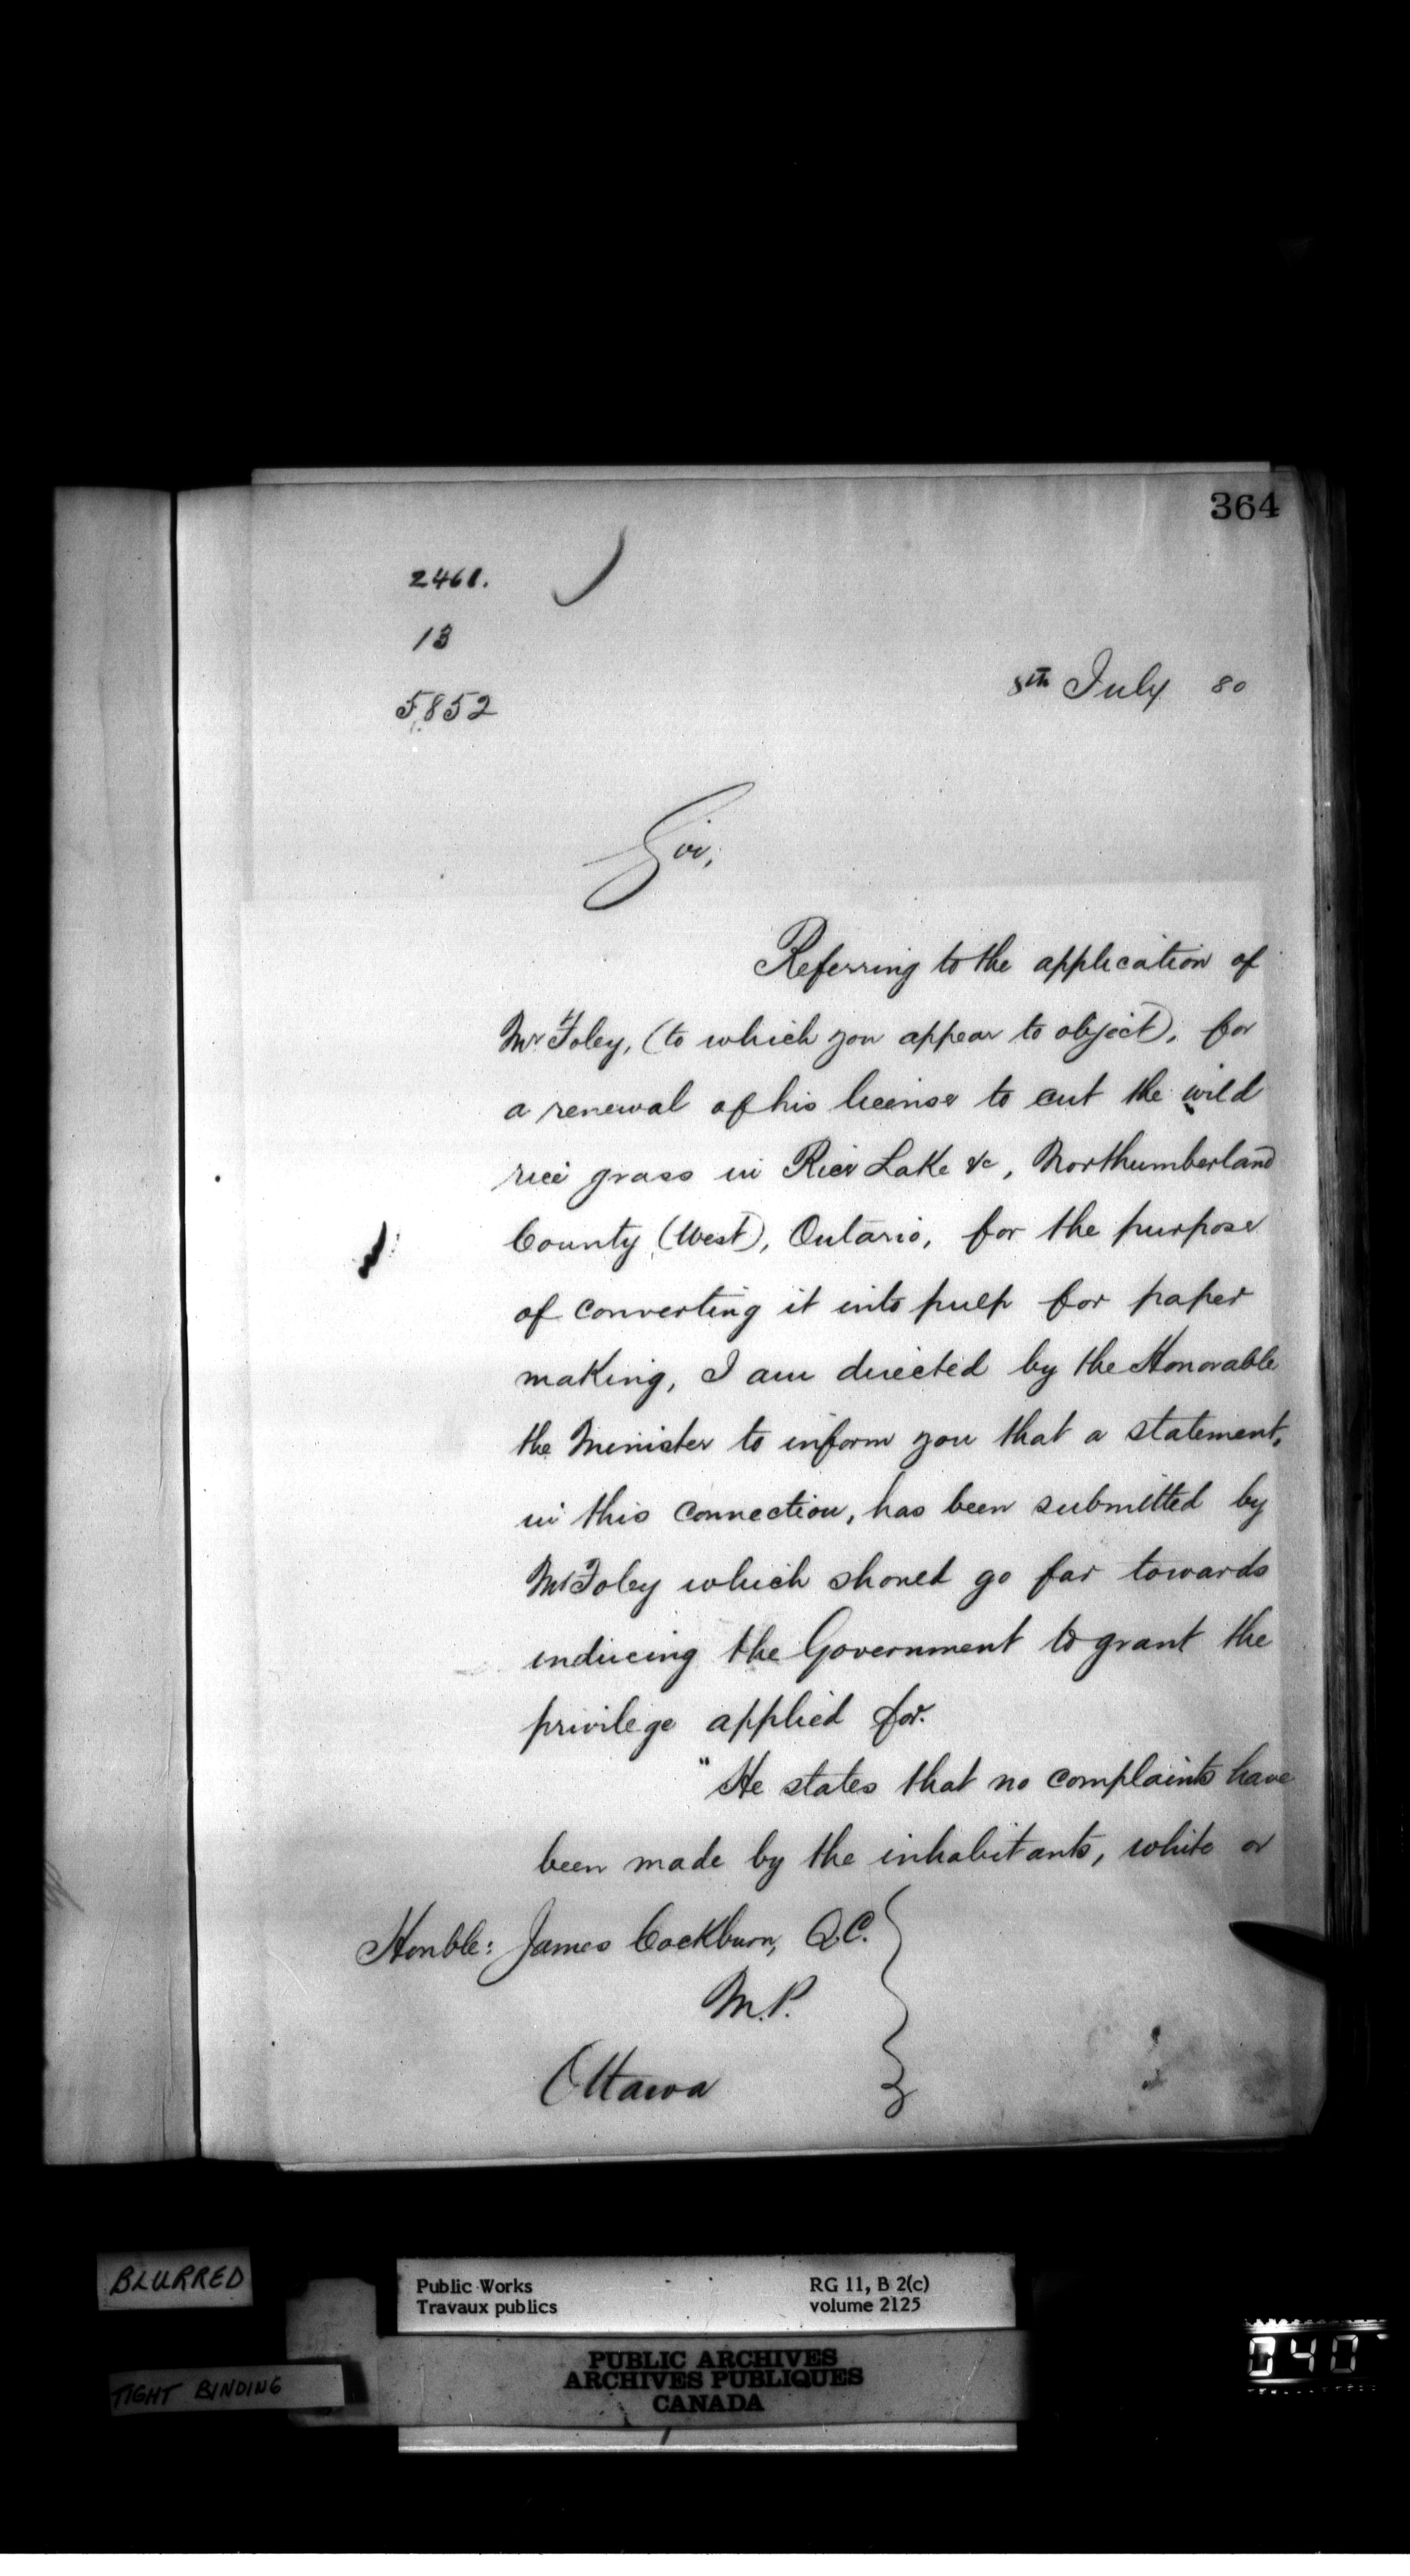 364
2461.
13
5,852
8th July 80
Sir,
Referring to the application of
Mr Foley, (to which you appear to object), for
a renewal of his license to cut the wild
rice grass in Rice Lake &c, Northumberland
County (West), Ontario, for the purpose
of converting it into pulp for paper
making, I am directed by the Honorable
the Minister to inform you that a statement,
in this connection, has been submitted by
Mr Foley which should go far towards
inducing the Government to grant the
privilege applied for.
"He states that no complaints have
been made by the inhabitants, white or
Honble: James Cockburn, Q.C.
M.P.
Ottawa
BLURRED
TIGHT BINDING
Public Works
Travaux publics
RG 11, B 2(c)
volume 2125
PUBLIC ARCHIVES
ARCHIVES PUBLIQUES
CANADA
040